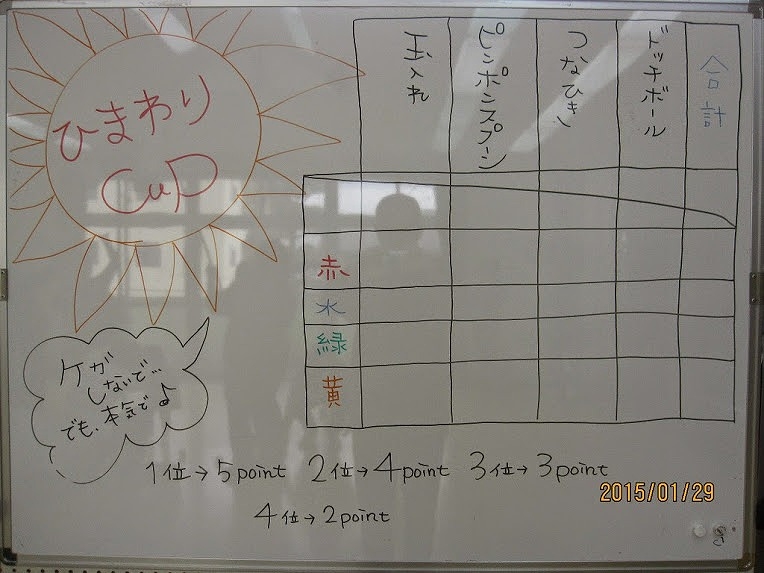 ひまわり
CUP
玉入れ
ピンポンスプーン
つなひき
ドッチボール
合計
赤
水
緑
黄
ケガ
しないで…
でも、本気で♪
1位→5point 2位→4point 3位→3point
4位→2point
2015/01/29